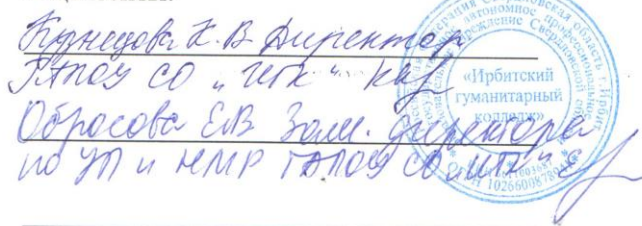 Кузнецова Н.В Директор
ГАПОУ СО „ИГК"
Обросова Е.В Зам. директора
по УП и НМР ГАПОУ СО „ИГК"
«Ирбитский
гуманитарный
колледж»